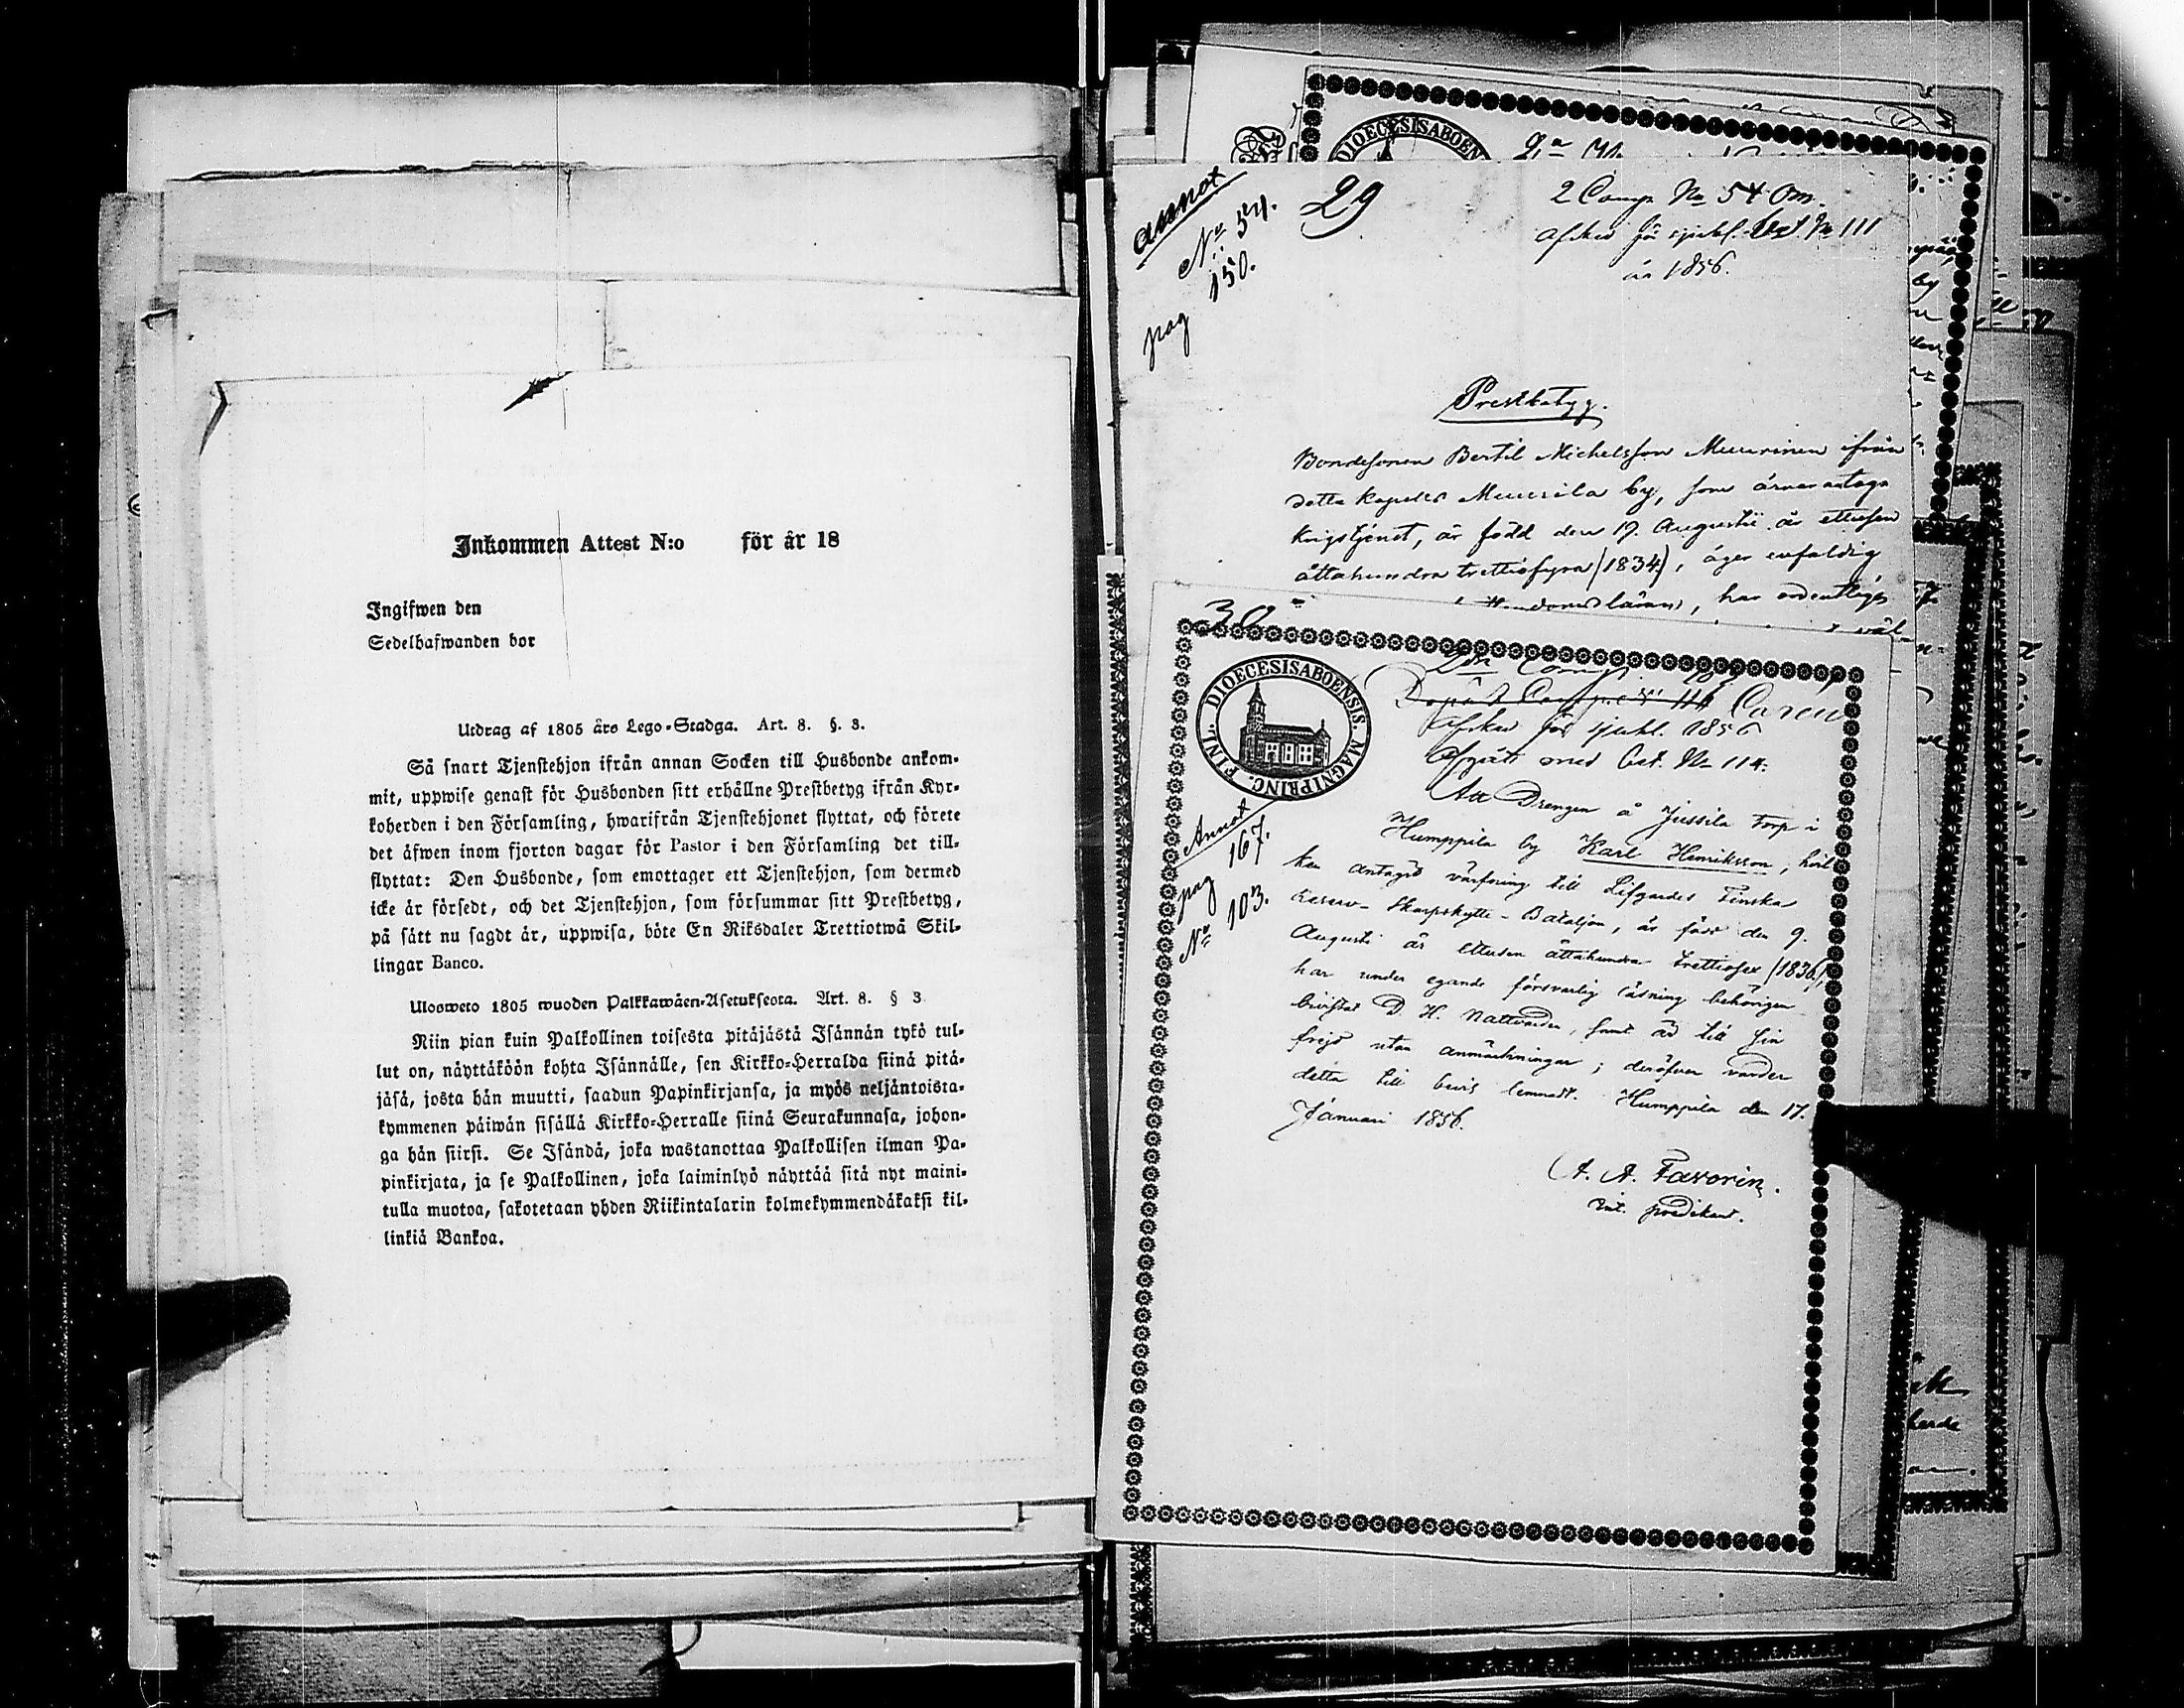 Inkommen Attest N:o för år 18
Ingifwen den
Sedelhafwanden bor
Utdrag af 1805 års Lego-Stadga. Art. 8. §. 3.
Så snart Tjenstehjon ifrån annan Socken till Husbonde ankom-
mit, uppwise genast för Husbonden sitt erhållne Prestbetyg ifrån Kyr-
koherden i den Församling, hwarifrån Tjenstehjonet flyttat, och förete
det äfwen inom fjorton dagar för Pastor i den Församling det till-
flyttat: Den Husbonde, som emottager ett Tjenstehjon, som dermed
icke är försedt, och det Tjenstehjon, som försummar sitt Prestbetyg,
på sätt nu sagdt är, uppwisa, böte En Riksdaler Trettiotwå Skil-
lingar Banco.
Ulosweto 1805 wuoden Palkkawäen-Asetuksesta. Art. 8. § 3
Niin pian kuin Palkollinen toisesta pitäjästä Isännän tykö tul-
lut on, näyttäköön kohta Isännälle, sen Kirkko-Herralda siinä pitä-
jäsä, josta hän muutti, saadun Papinkirjansa, ja myös neljäntoista-
kymmenen päiwän sisällä Kirkko-Herralle siinä Seurakunnasa, johon-
ga hän siirsi. Se Isändä, joka wastanottaa Palkollisen ilman Pa-
pinkirjata, ja se Palkollinen, joka laiminlyö näyttää sitä nyt maini-
tulla muotoa, sakotetaan yhden Riikintalarin kolmekymmendäkaksi kil-
linkiä Bankoa.
DIOECESISABOEN
annot
No 54.
pag 150.
29
2 Comp No 54 Om.
afsked för sjukl. Ut No 111
år 1856.
Prestbetyg.
Bondesonen Bertil Michelsson Muurinen ifrån
detta kapells Muurila by, som ärnar antaga
krigstjenst, är född den 17. Augusti år ettusen
åttahundra trettiofyra (1834), äger enfaldig
Christendomslärans, har ordentligen
30
FINL. DIOECESISABOENSIS. MAGNIPRINC.
2dra Comp
Caren
afsked för sjukl. 1856
Afgått med bet. No 114.
Annot
pag 167.
No 103.
Att Drengen å Jussila torp i
Humppila by Karl Henriksson, hvil
ken antagit värfning till Lifgardes Finska
Reserv-Skarpskytte-Bataljon, är född den 9.
Augusti år ettusen åttahundra trettiosex (1836),
har under egande försvarlig läsning behörigen
bevistat D. H. Nattvarden, samt är till sin
frejd utan anmärkningar; deröfver varder
detta till bevis lemnadt. Humppila den 17.
Januari 1856.
A. A. Favorin.
vic. predikant.